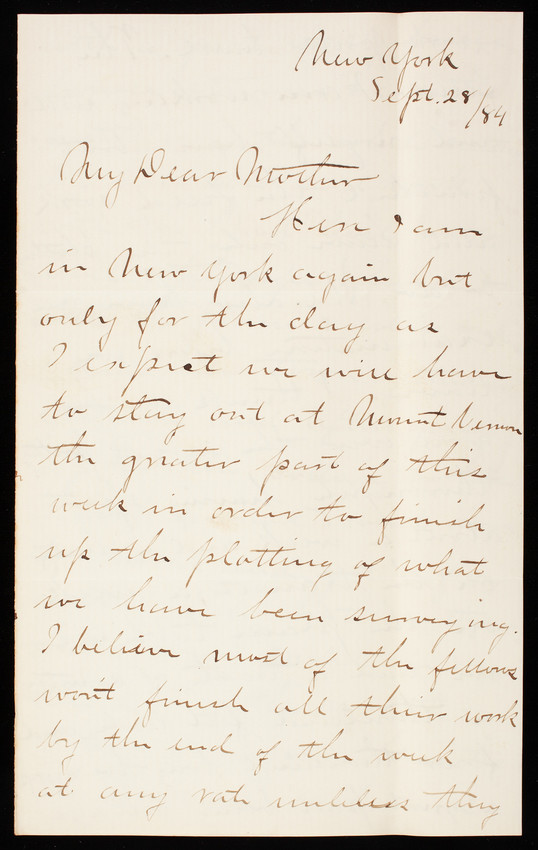 New York
Sept. 28/84
My Dear Mother
Here I am
in New York again but
only for the day as
I expect we will have
to stay out at Mount Vernon
the greater part of this
week in order to finish
up the plotting of what
we have been surveying.
I believe most of the fellows
won't finish all their work
by the end of the week
at any rate unless they